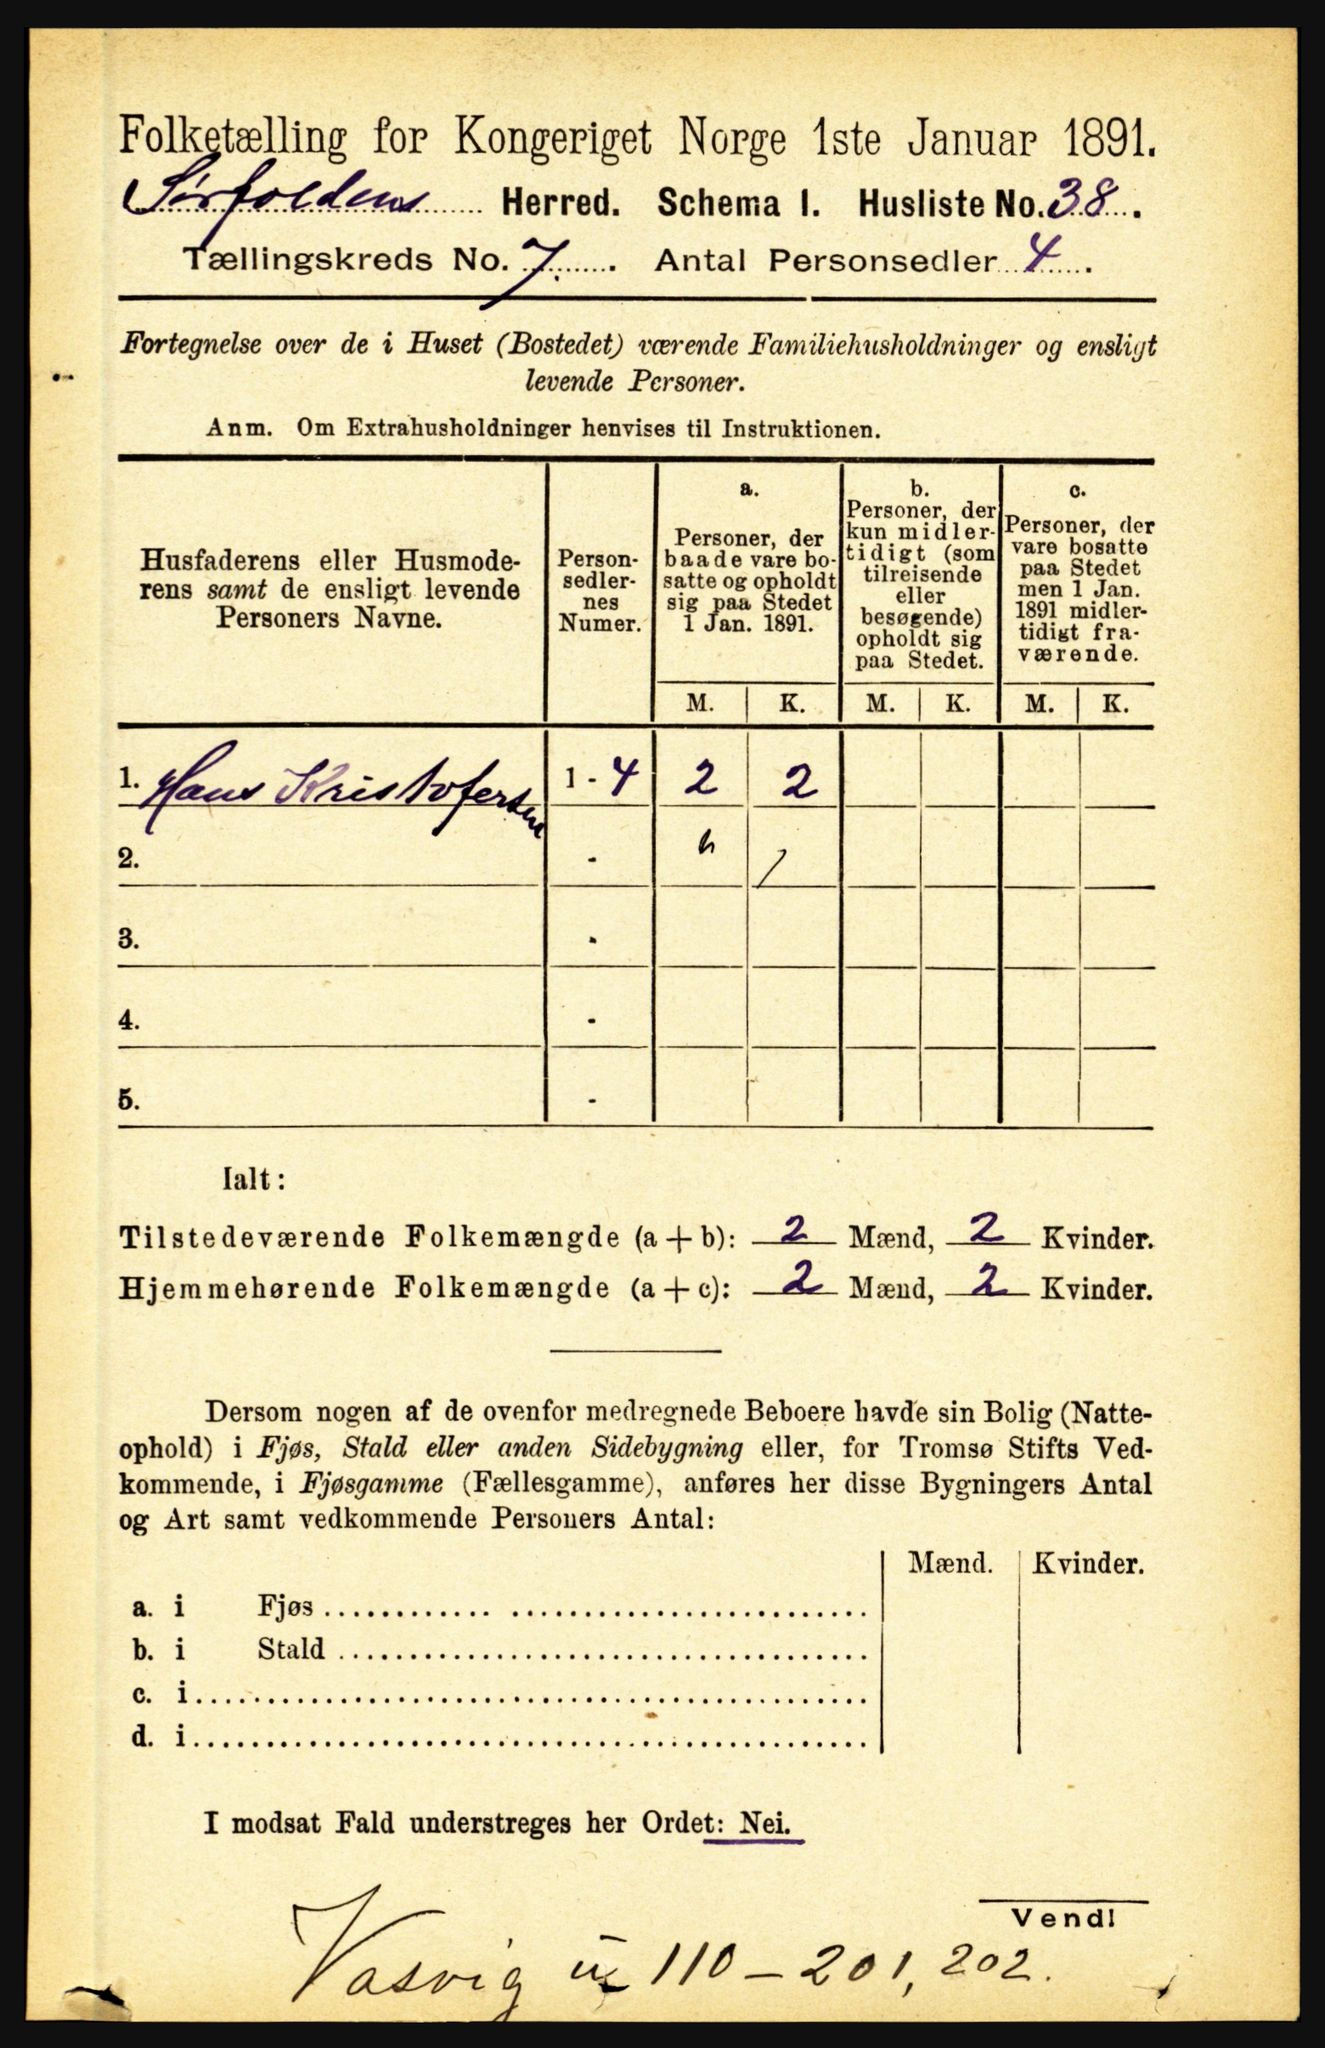 Folketælling for Kongeriget Norge 1ste Januar 1891.
Sørfoldens Herred. Schema I. Husliste No. 38.
Tællingskreds No. 7. Antal Personsedler 4.
Fortegnelse over de i Huset (Bostedet) værende Familiehusholdninger og ensligt
levende Personer.
Anm. Om Extrahusholdninger henvises til Instruktionen.
Husfaderens eller Husmode-
rens samt de ensligt levende
Personers Navne.
Person-
sedler-
nes
Numer.
a.
Personer, der
baade vare bo-
satte og opholdt
sig paa Stedet
1 Jan. 1891.
b.
Personer, der
kun midler-
tidigt (som
tilreisende
eller
besøgende)
opholdt sig
paa Stedet.
c.
Personer, der
vare bosatte
paa Stedet
men 1 Jan.
1891 midler-
tidigt fra-
værende.
M. K. M. K. M. K.
1. Hans Kristofersen 1 - 4 2 2
2. -
3. -
4. -
5. -
Ialt:
Tilstedeværende Folkemængde (a + b): 2 Mænd, 2 Kvinder.
Hjemmehørende Folkemængde (a + c): 2 Mænd, 2 Kvinder.
Dersom nogen af de ovenfor medregnede Beboere havde sin Bolig (Natte-
ophold) i Fjøs, Stald eller anden Sidebygning eller, for Tromsø Stifts Ved-
kommende, i Fjøsgamme (Fællesgamme), anføres her disse Bygningers Antal
og Art samt vedkommende Personers Antal:
Mænd. Kvinder.
a. i Fjøs
b. i Stald
c. i
d. i
I modsat Fald understreges her Ordet: Nei.
Vend!
Vasvig 110 - 201, 202.